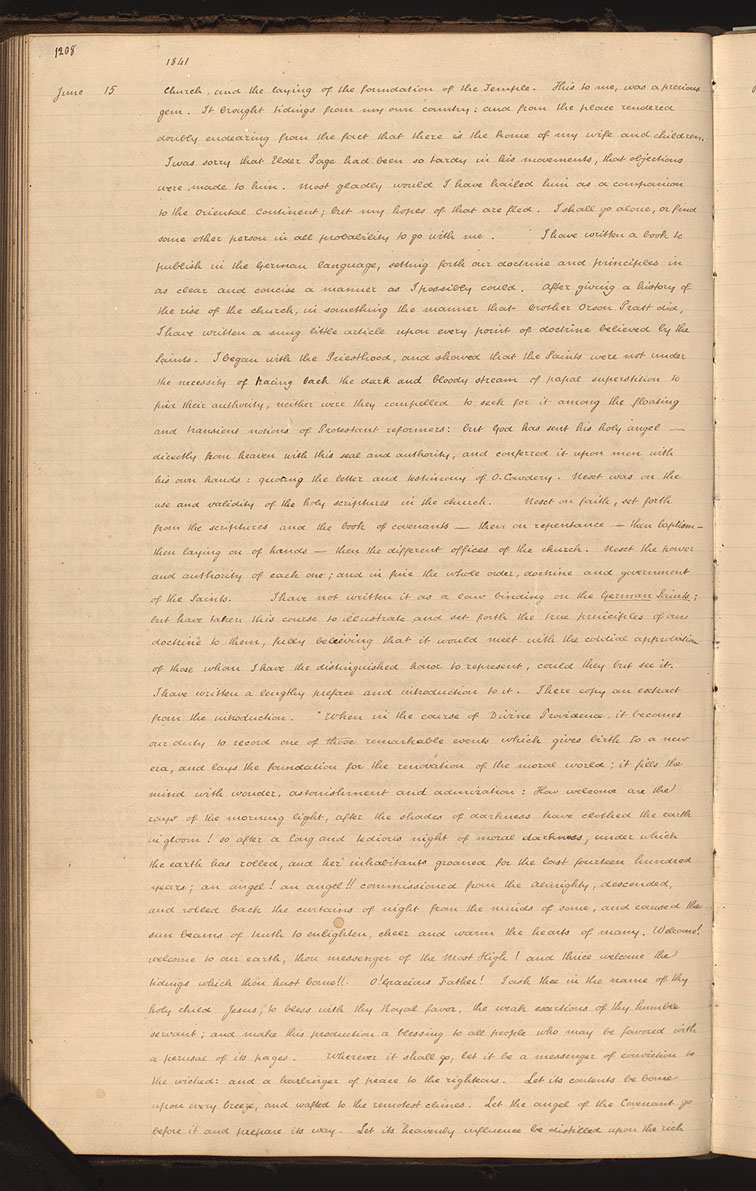 1208
1841
June 15 Church, and the laying of the foundation of the Temple. This to me, was a precious
gem. It brought tidings from my own country: and from the place rendered
doubly endearing from the fact that there is the home of my wife and children.
I was sorry that Elder Page had been so tardy in his movements, that objections
were made to him. Most gladly would I have hailed him as a companion
to the Oriental Continent; but my hopes of that are fled. I shall go alone, or find
some other person in all probability to go with me. I have written a book to
publish in the German language, setting forth our doctrine and principles in
as clear and concise a manner as I possibly could. After giving a history of
the rise of the church, in something the manner that brother Orson Pratt did,
I have written a snug little article upon every point of doctrine believed by the
Saints. I began with the Priesthood, and showed that the Saints were not under
the necessity of tracing back the dark and bloody stream of papal superstition to
find their authority, neither were they compelled to seek for it among the floating
and transient notions of Protestant reformers: but God has sent his holy angel —
directly from heaven with this seal and authority, and conferred it upon men with
his own hands: quoting the letter and testimony of O. Cowdery. Next was on the
use and validity of the holy scriptures in the church. Next on faith, set forth
from the scriptures and the book of covenants — then on repentance — then baptism —
then laying on of hands — then the different offices of the church. Next the power
and authority of each one; and in fine the whole order, doctrine and government
of the Saints. I have not written it as a law binding on the German Saints;
but have taken this course to illustrate and set forth the true principles of our
doctrine to them, fully believing that it would meet with the cordial approbation
of those whom I have the distinguished honor to represent, could they but see it.
I have written a lengthy preface and introduction to it. I here copy an extract
from the introduction. "When in the course of Divine Providence, it becomes
our duty to record one of those remarkable events which gives birth to a new
era, and lays the foundation for the renovation of the moral world; it fills the
mind with wonder, astonishment and admiration: How welcome are the
rays of the morning light, after the shades of darkness have clothed the earth
in gloom! so after a long and tedious night of moral darkness, under which
the earth has rolled, and her inhabitants groaned for the last fourteen hundred
years; an angel! an angel!! commissioned from the Almighty, descended,
and rolled back the curtains of night from the minds of some, and caused the
sun beams of truth to enlighten, cheer and warm the hearts of many. Welcome!
welcome to our earth, thou messenger of the Most High! and thrice welcome the
tidings which thou hast borne!! O! Gracious Father! I ask thee in the name of thy
holy child Jesus, to bless with thy Royal favor, the weak exertions of thy humble
servant; and make this production a blessing to all people who may be favored with
a perusal of its pages. Wherever it shall go, let it be a messenger of conviction to
the wicked: and a harbinger of peace to the righteous. Let its contents be borne
upon every breeze, and wafted to the remotest climes. Let the angel of the Covenant go
before it and prepare its way. Let its heavenly influence be distilled upon the rich